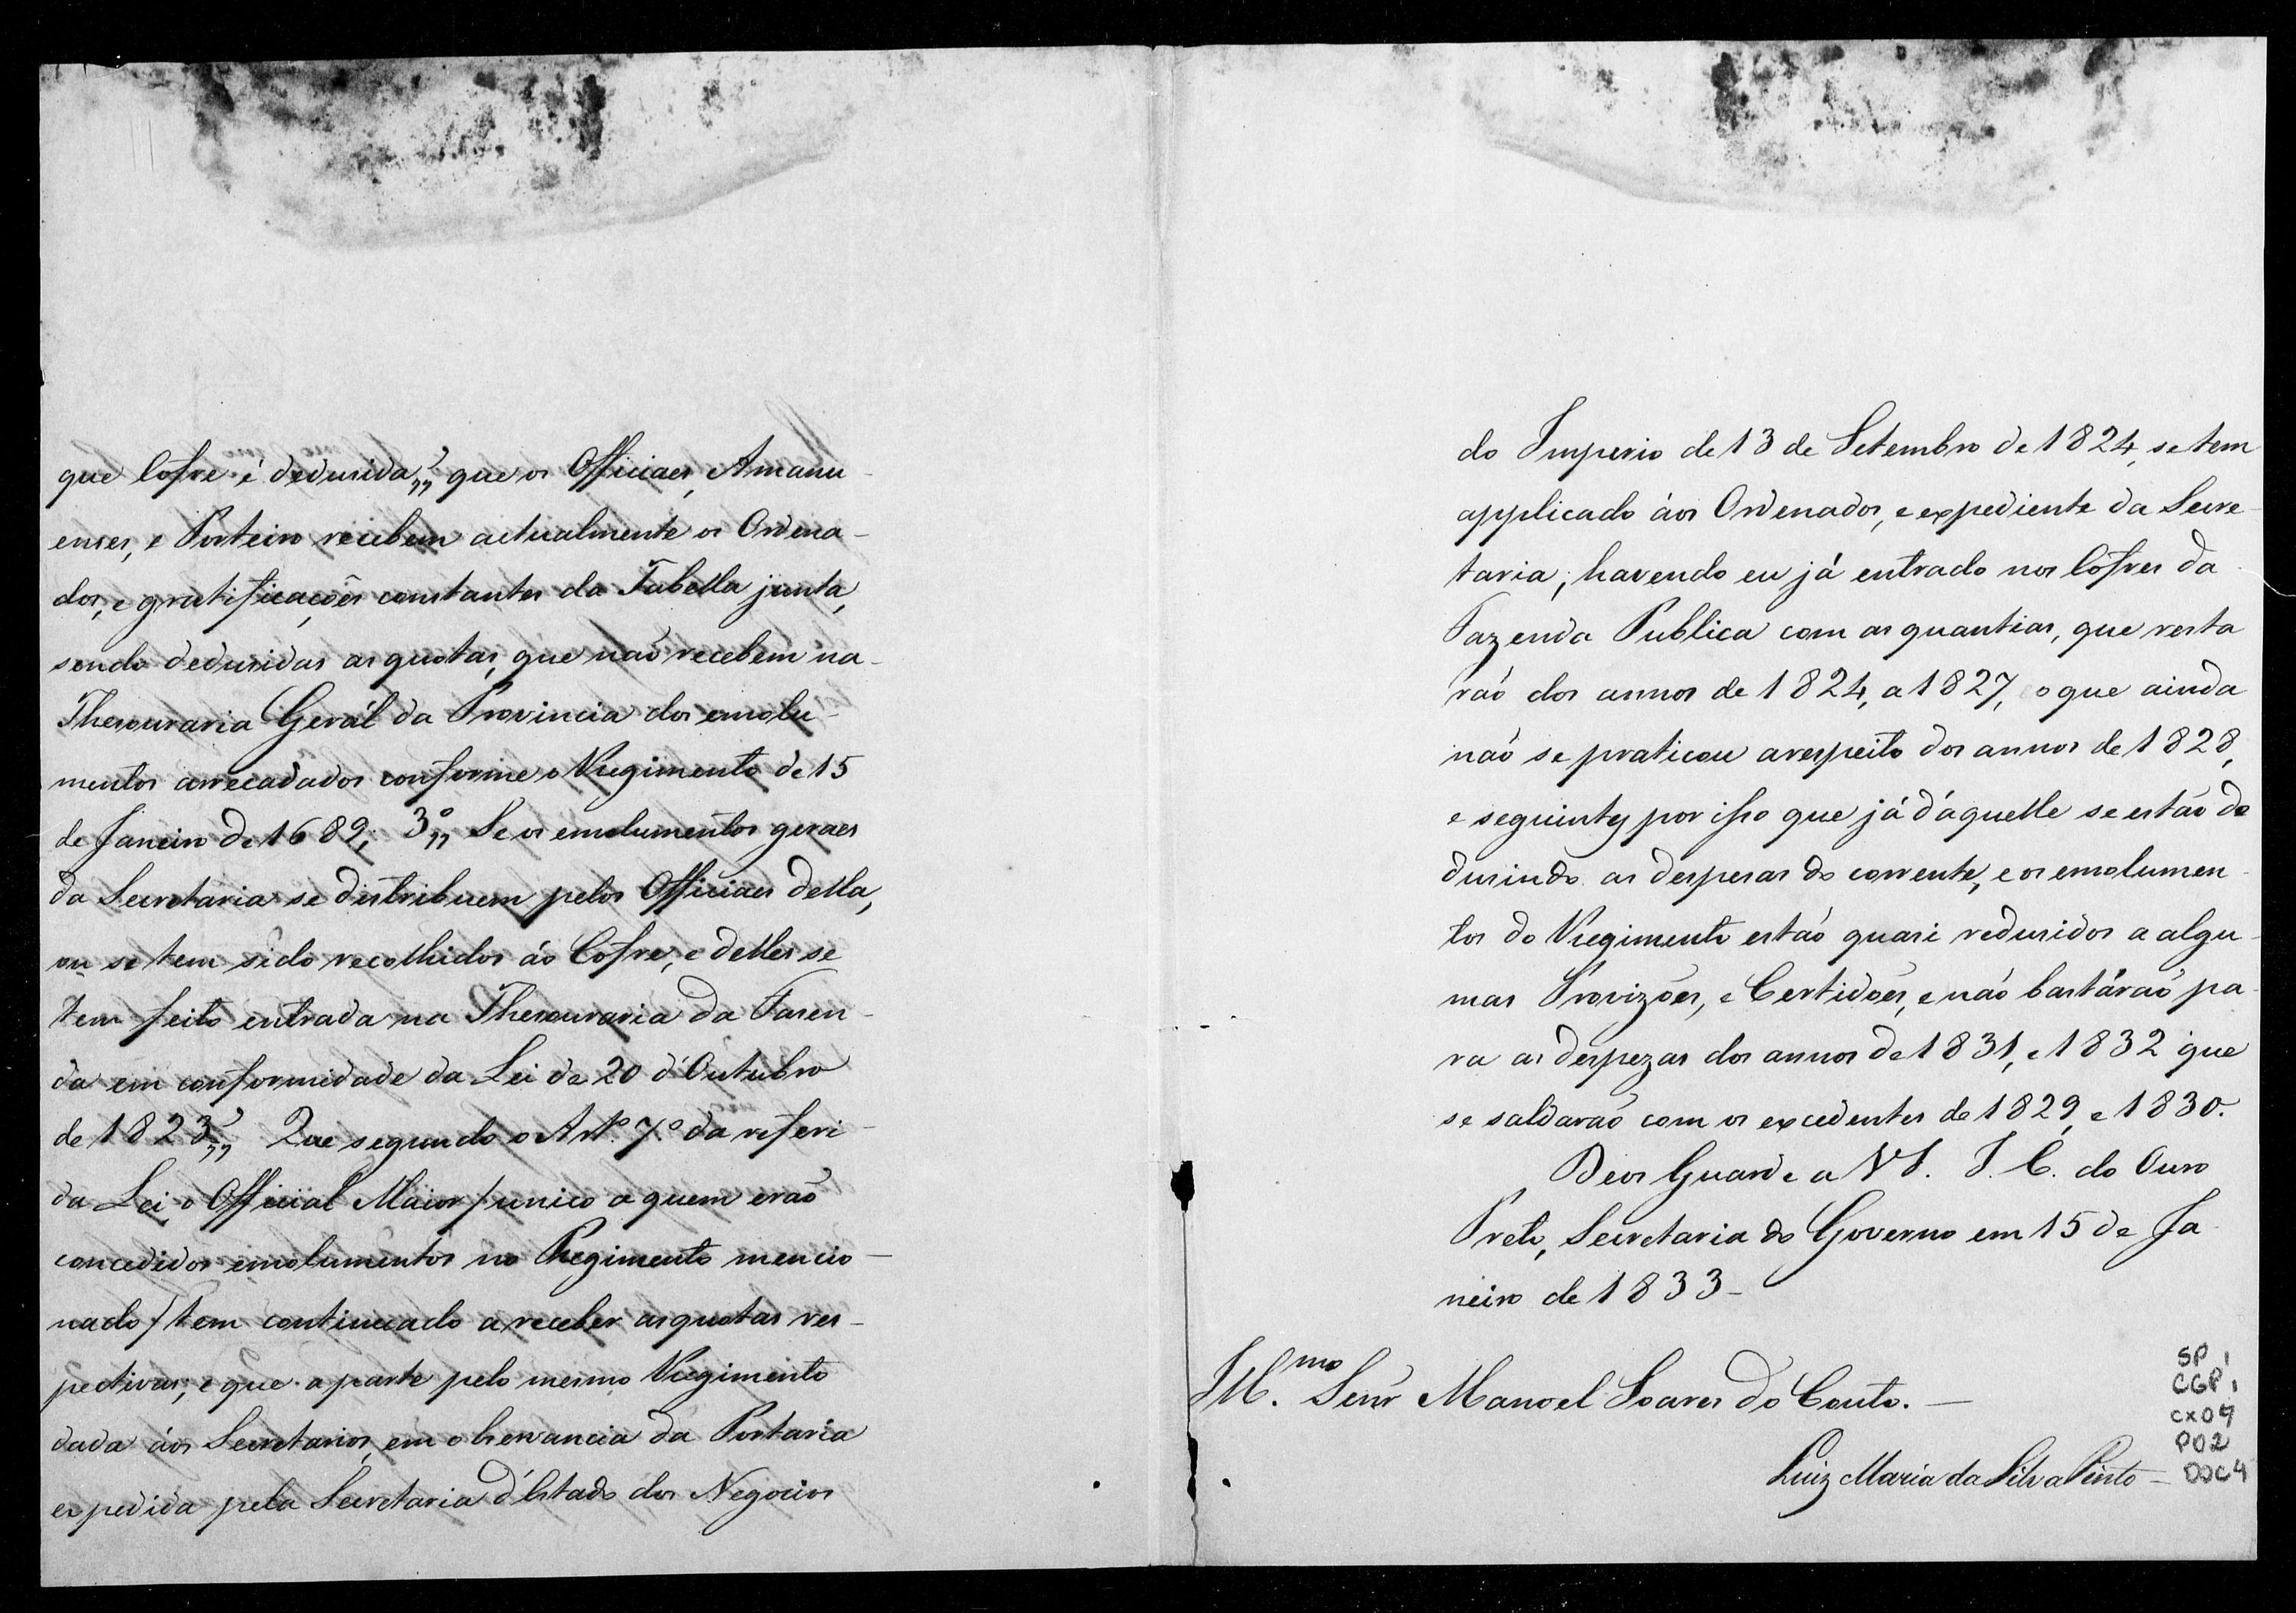 que Cofre é dedusida,,? que os Officiaes, Amanu-
enses, e Porteiro recebem actualmente os Ordena-
dos, e gratificações constantes da Tabella junta,
sendo dedusidas as quotas, que não recebem na
Thesouraria Gerál da Provincia dos emolu-
mentos arrecadados conforme o Regimento de 15
de Janeiro de 1689; 3º,, Se os emolumentos geraes
da Secretaria se distribuem pelos Officiaes della,
ou se tem sido recolhidos áo Cofre, e delles se
tem feito entrada na Thesouraria da Fasen-
da em conformidade da Lei de 20 d'Outubro
de 1823,,? Que segundo o Artº. 7º. da referi-
da Lei, o Official Maior / unico a quem erão
concedidos emolumentos no Regimento mencio-
nado / tem continuado a receber as quotas res-
pectivas, e que a parte pelo mesmo Regimento
dada áos Secretarios, em observancia da Portaria
expedida pela Secretaria d'Estado dos Negocios
do Imperio de 13 de Setembro de 1824, se tem
applicado áos Ordenados, e expediente da Secre-
taria; havendo eu já entrado nos Cofres da
Fazenda Publica com as quantias, que resta-
rão dos annos de 1824, a 1827, o que ainda
não se praticou a respeito dos annos de 1828,
e seguintes por isso que já d'aquelle se estão de
dusindo as despesas do corrente, e os emolumen-
tos do Regimento estão quasi redusidos a algu-
mas Provizões, e Certidões, e não bastárão pa-
ra as despezas dos annos de 1831, e 1832 que
se saldarão com os excedentes de 1829, e 1830.
Deos Guarde a VS. I. C. do Ouro
Preto, Secretaria do Governo em 15 de Ja-
neiro de 1833-
Ill.mo Senr Manoel Soares do Couto.-
Luiz Maria da Silva Pinto-
SP 1
CGP 1
CX 04
P02
DOC4